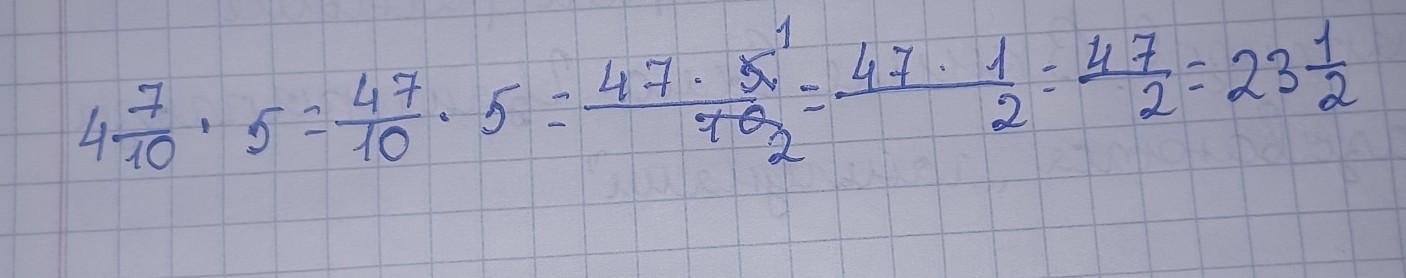 4 7/10 · 5 = 47/10 · 5 = 47 · 5̸ 1 / 1̸0̸ 2 = 47 · 1 / 2 = 47/2 = 23 1/2